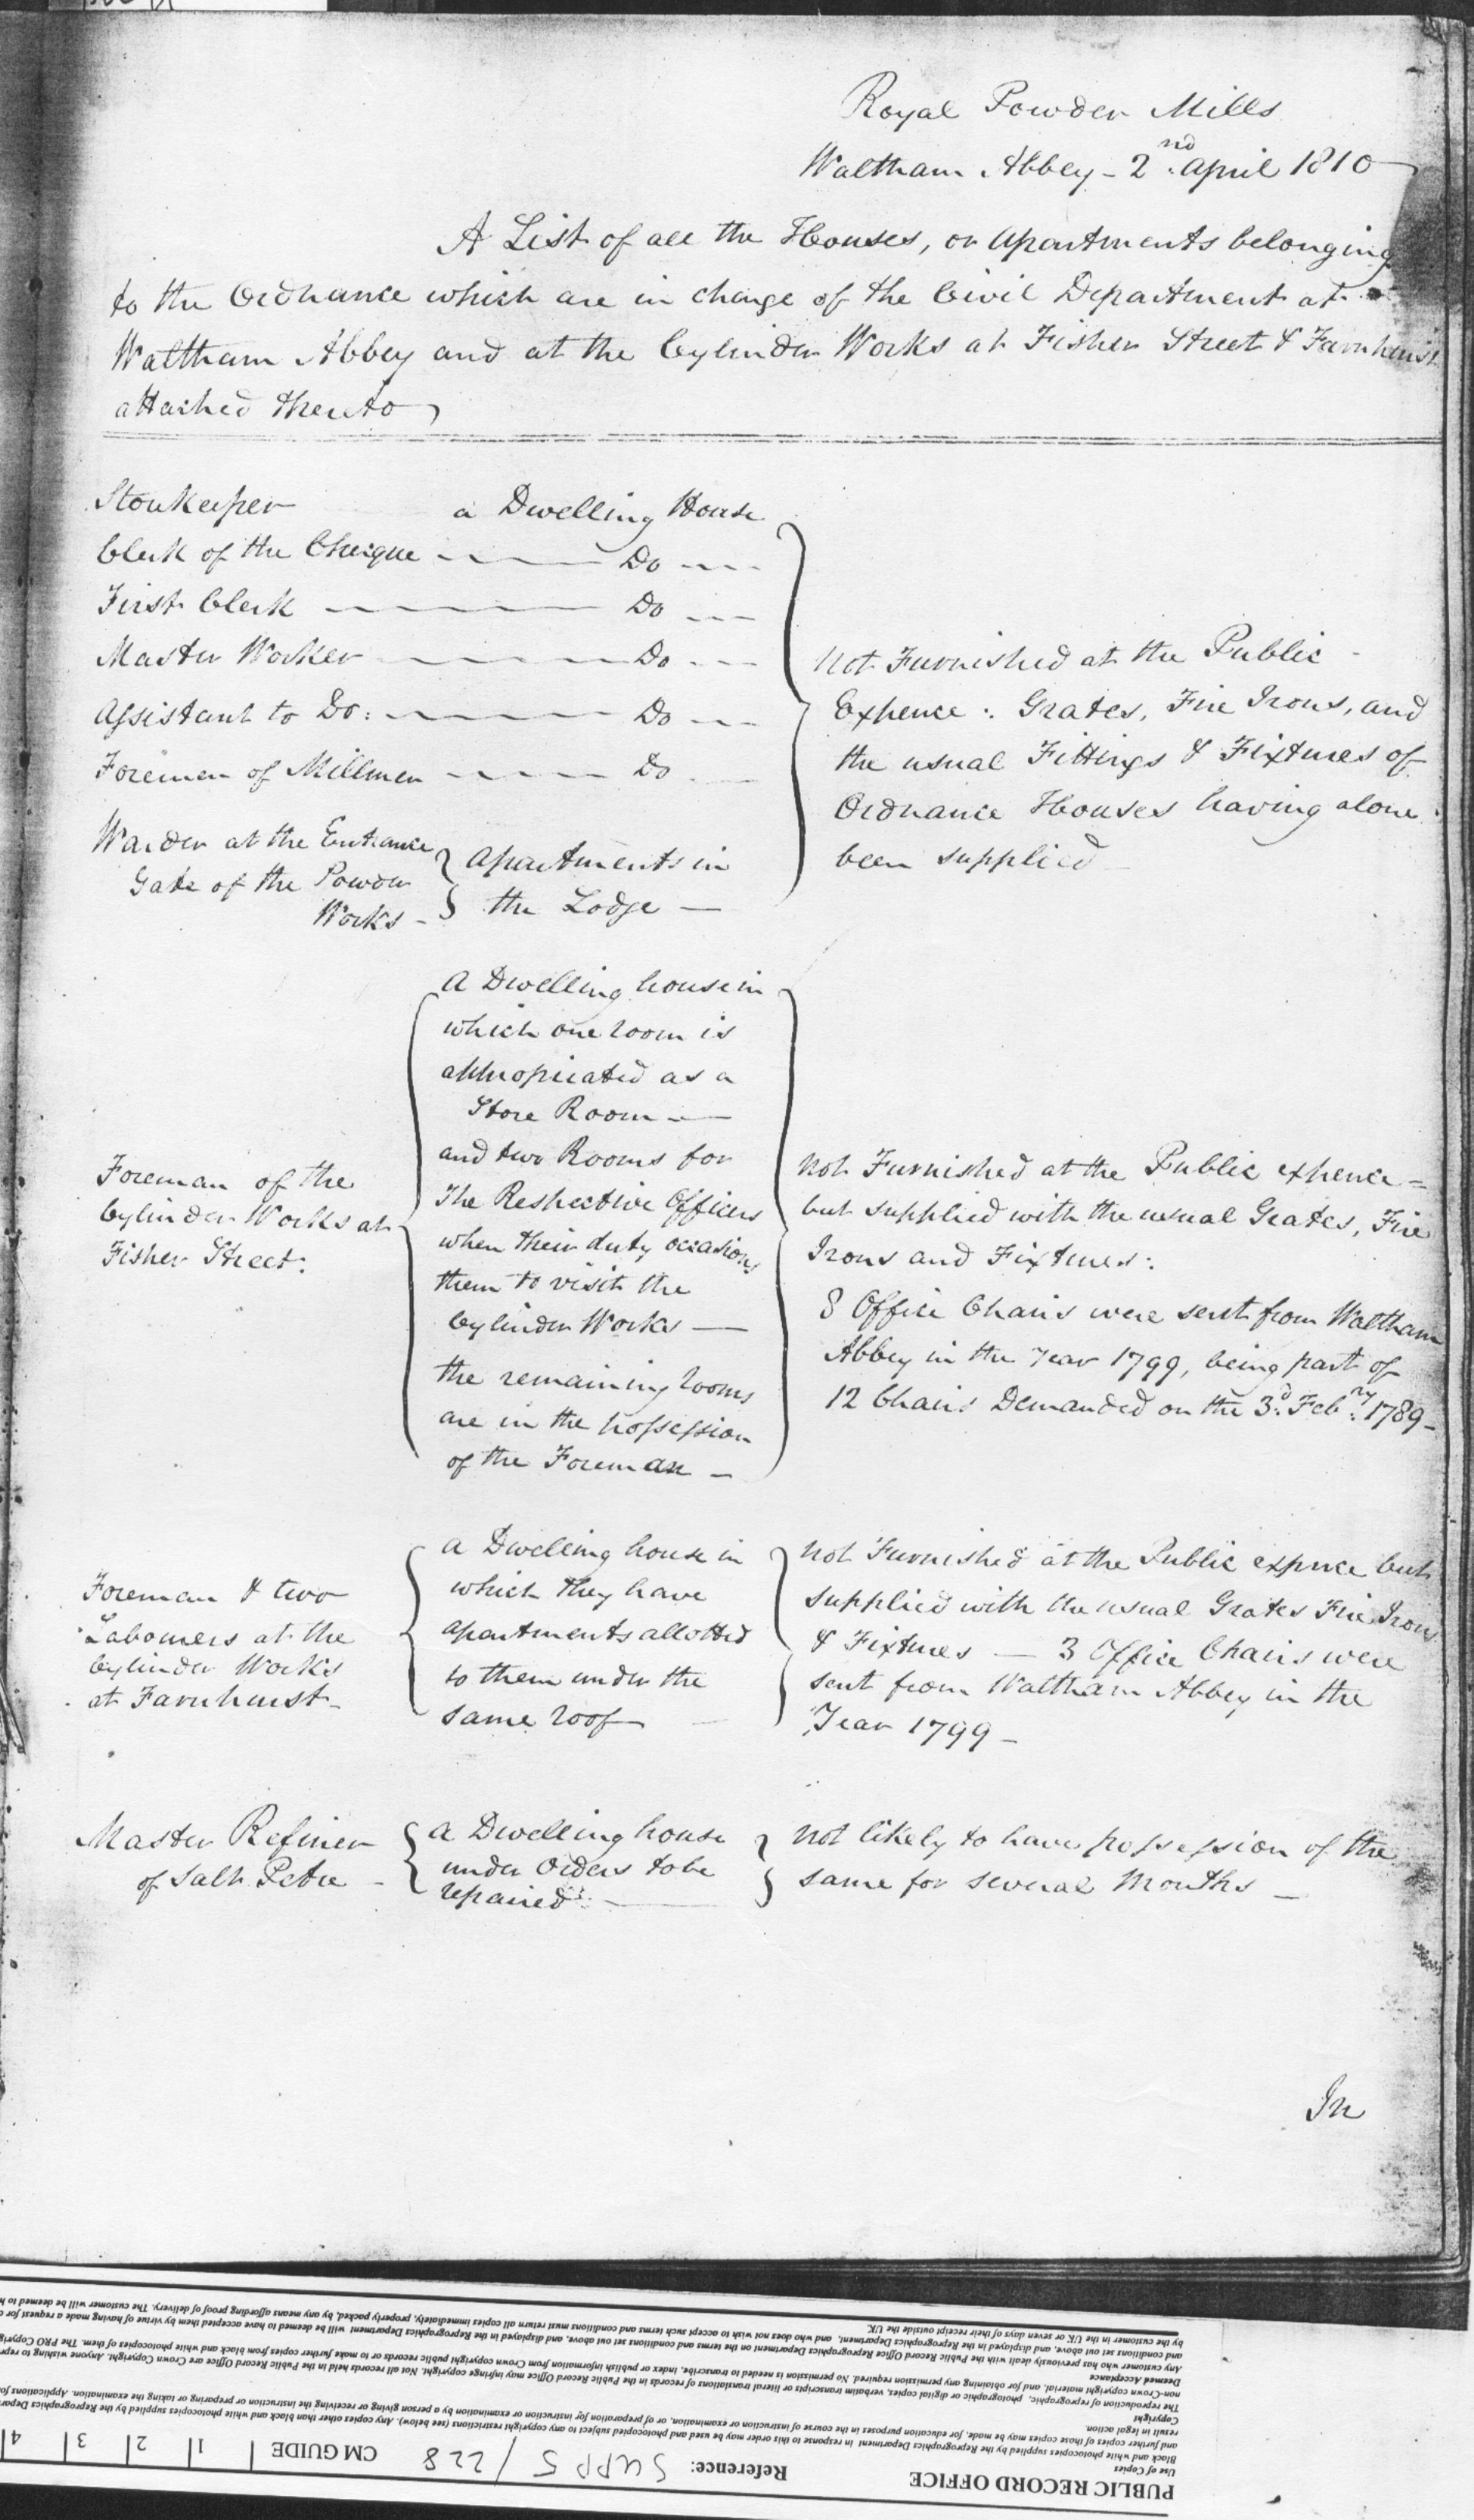 Royal Powder Mills
Waltham Abbey - 2nd. April 1810
A List of all the Houses, or Apartments belonging
to the Ordnance which are in charge of the Civil Department at
Waltham Abbey and at the Cylinder Works at Fisher Street & Farnhurst
attached thereto
Storekeeper a Dwelling House
Clerk of the Cheque Do
First Clerk Do
Master Worker Do
Assistant to Do: Do
Foreman of Millmen Do
Warder at the Entrance
Gate of the Powder
Works -
Apartments in
the Lodge —
Not Furnished at the Public
Expence :. Grates, Fire Irons, and
the usual Fittings & Fixtures of
Ordnance Houses having alone
been supplied
Foreman of the
Cylinder Works at
Fisher Street:
A Dwelling house in
which one room is
appropriated as a
Store Room —
and two Rooms for
The Respective Officers
when their duty occasions
them to visit the
Cylinder Works —
the remaining rooms
are in the possession
of the Foreman —
Not Furnished at the Public expence =
but supplied with the usual Grates, Fire
Irons and Fixtures:
8 Office Chairs were sent from Waltham
Abbey in the Year 1799, being part of
12 Chairs Demanded on the 3d. Febry. 1789 -
Foreman & two
Labourers at the
Cylinder Works
at Farnhurst -
A Dwelling house in
which they have
apartments allotted
to them under the
same roof
Not Furnished at the Public expnce but
supplied with the usual Grates Fire Irons
& Fixtures — 3 Office Chairs were
sent from Waltham Abbey in the
Year 1799 -
Master Refiner
of Salt Petre -
A Dwelling house
under Orders to be
repaired
Not likely to have possession of the
same for several Months —
In
PUBLIC RECORD OFFICE
Reference: SUPP 5 / 228
CM GUIDE 1 2 3 4
Use of Copies
Black and white photocopies supplied by the Reprographics Department in response to this order may be used and photocopied subject to any copyright restrictions (see below). Any copies other than black and white photocopies supplied by the Reprographics
and further copies of those copies may be made, for education purposes in the course of instruction or examination, or of preparation for instruction or examination by a person giving or receiving the instruction or preparing or taking the examination. Applications
result in legal action.
Copyright
The reproduction of reprographic, photographic or digital copies, verbatim transcripts or literal translations of records in the Public Record Office may infringe copyright. Not all records held in the Public Record Office are Crown Copyright. Anyone wishing to
non-Crown copyright material, and for obtaining any permission required. No permission is needed to transcribe, index or publish information from Crown copyright public records or to make further copies from black and white photocopies of them. The PRO
Deemed Acceptance
Any customer who has previously dealt with the Public Record Office Reprographics Department on the terms and conditions set out above, and displayed in the Reprographics Department will be deemed to have accepted them by virtue of having made a request for
and conditions set out above, and displayed in the Reprographics Department, and who does not wish to accept such terms and conditions must return all copies immediately, properly packed, by any means affording proof of delivery. The customer will be deemed to
by the customer in the UK or seven days of their receipt outside the UK.